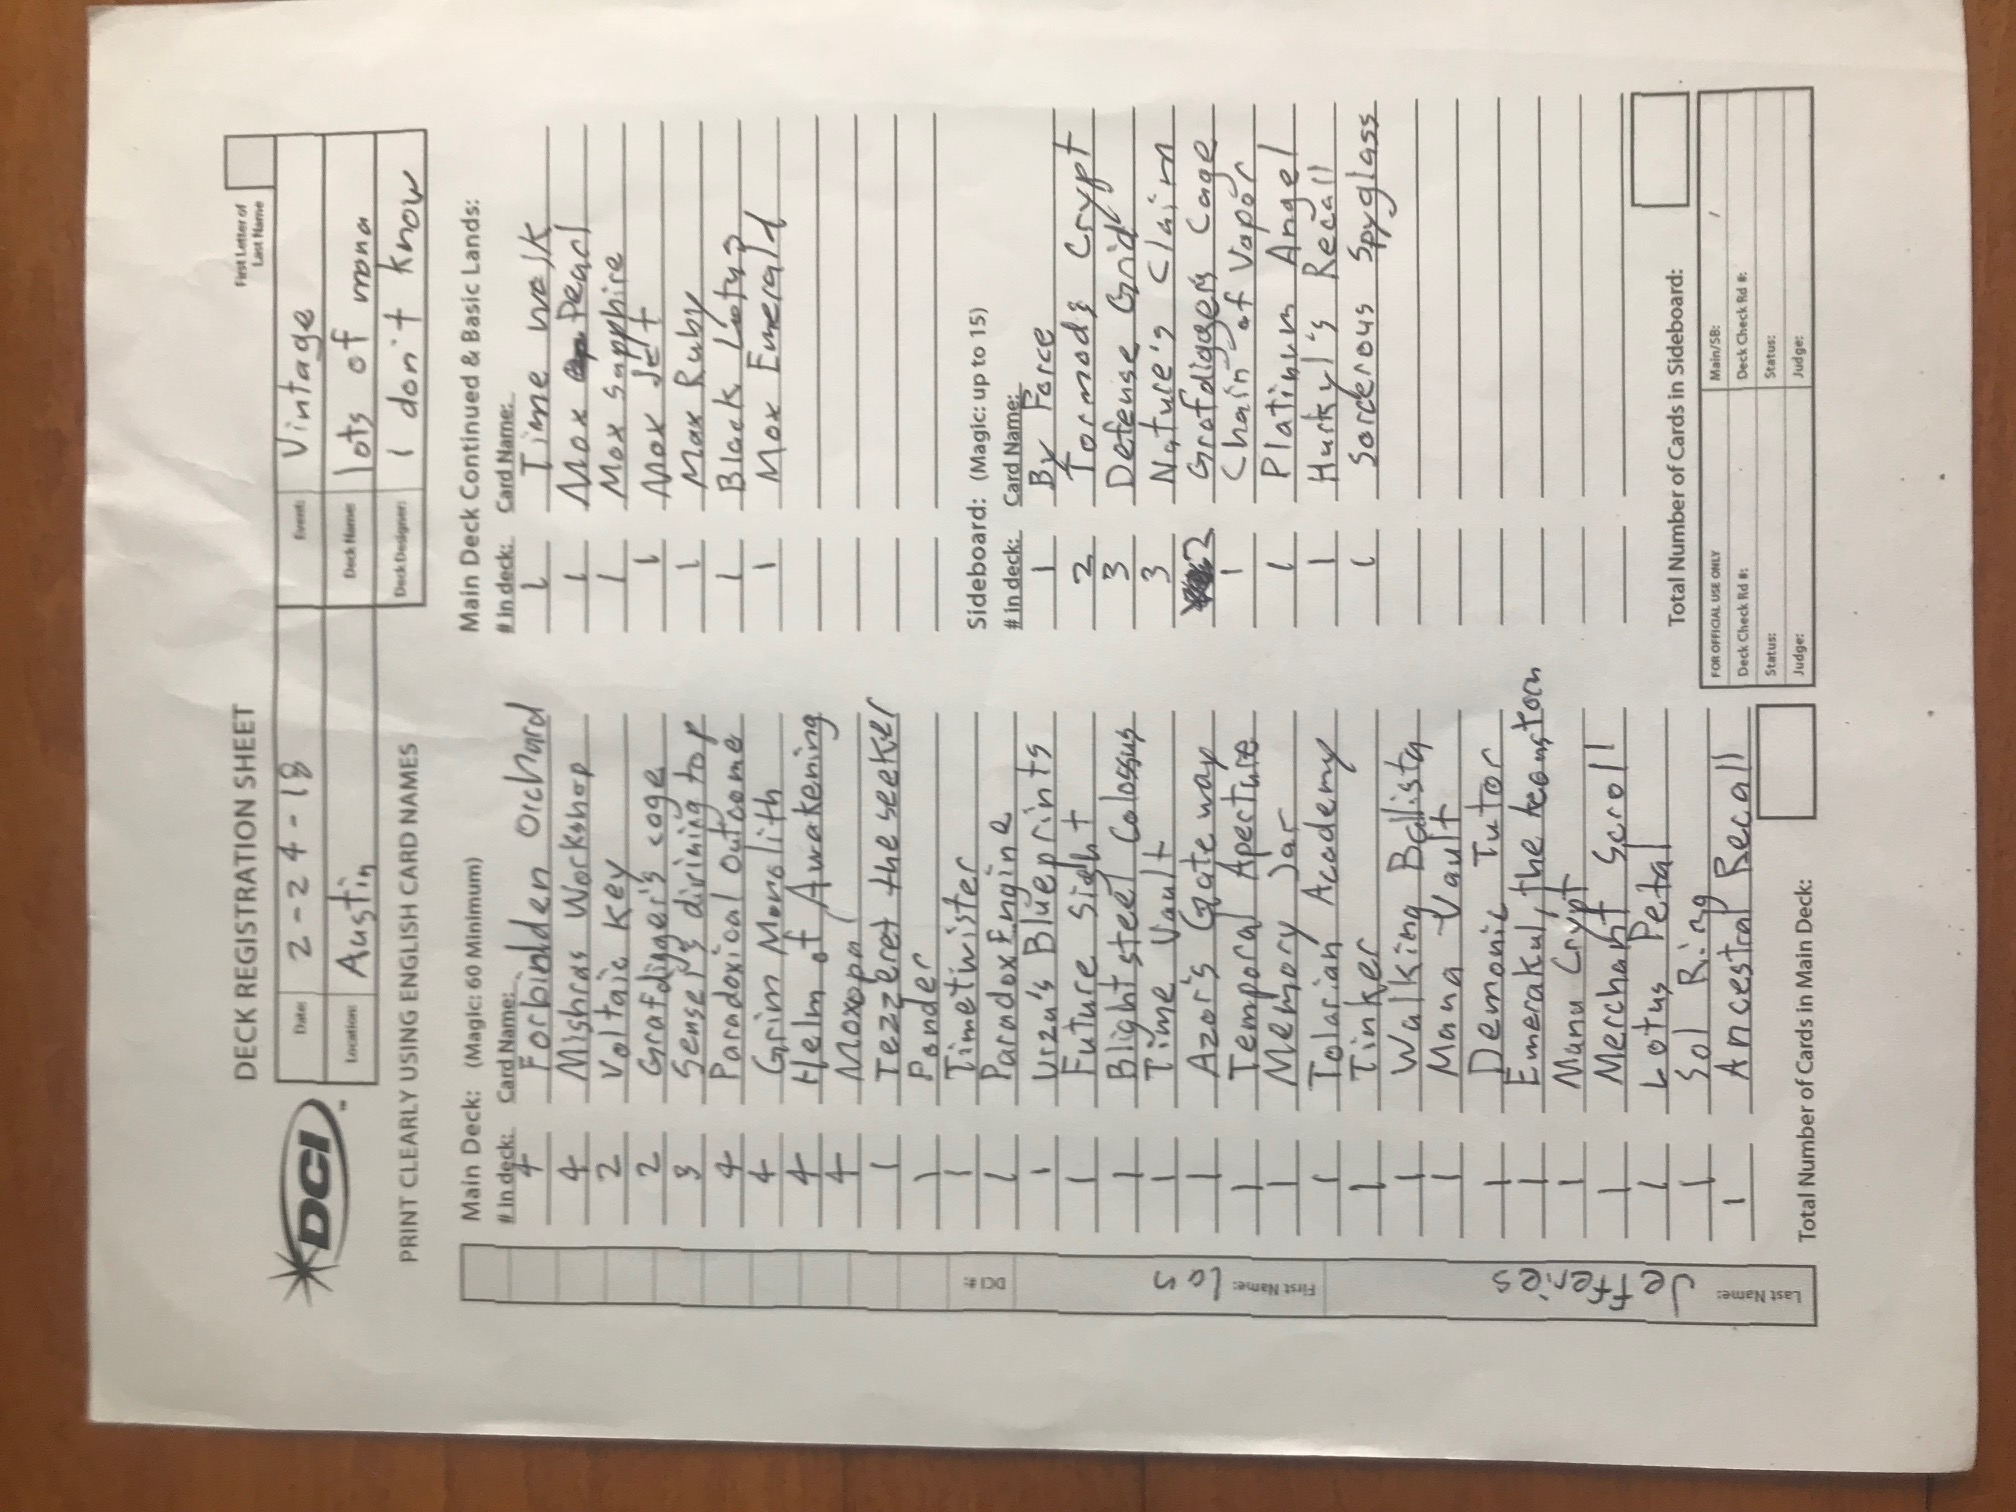 DECK REGISTRATION SHEET
First Letter of
Last Name
DCI
Date: 2-24-18
Event: Vintage
Location: Austin
Deck Name: lots of mona
Deck Designer: I don't know
PRINT CLEARLY USING ENGLISH CARD NAMES
Main Deck: (Magic: 60 Minimum)
# in deck: Card Name:
4 Forbidden Orchard
4 Mishras Workshop
2 Voltaic Key
2 Grafdigger's cage
3 Sensei's divining top
4 Paradoxical Outcome
4 Grim Monolith
4 Helm of Awakening
4 Moxopal
1 Tezzeret the seeker
1 Ponder
1 Timetwister
1 Paradox Engine
1 Urza's Blueprints
1 Future Sight
1 Blightsteel Colossus
1 Time Vault
1 Azor's Gateway
1 Temporal Aperture
1 Memory Jar
1 Tolarian Academy
1 Tinker
1 Walking Ballista
1 Mana Vault
1 Demonic Tutor
1 Emerakul, the
1 Mana Crypt
1 Merchant Scroll
1 Lotus Petal
1 Sol Ring
1 Ancestral Recall
Total Number of Cards in Main Deck:
Main Deck Continued & Basic Lands:
# in deck: Card Name:
1 Time walk
1 Mox Pearl
1 Mox Sapphire
1 Mox Jet
1 Max Ruby
1 Black Lotus
1 Mox Emerald
Sideboard: (Magic: up to 15)
# in deck: Card Name:
1 By Force
2 Tormod's Crypt
3 Defense Grid
3 Nature's Claim
2 Grafdigger's Cage
1 Chain of Vapor
1 Platinum Angel
1 Hurkyl's Recall
1 Sorcerous Spyglass
Total Number of Cards in Sideboard:
FOR OFFICIAL USE ONLY
Main/SB: /
Deck Check Rd #:
Deck Check Rd #:
Status:
Status:
Judge:
Judge:
DCI #:
First Name: Ian
Last Name: Jefferies